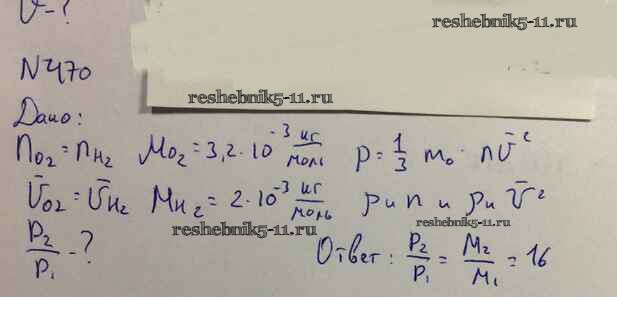 V-?
reshebnik5-11.ru
N470
reshebnik5-11.ru
Дано:
n_O₂ = n_H₂  M_O₂ = 3,2·10⁻³ кг/моль  p = 1/3 m₀·n v̄²
v̄_O₂ = v̄_H₂  M_H₂ = 2·10⁻³ кг/моль  p и n и p и v̄²
reshebnik5-11.ru
reshebnik5-11.ru
P₂/P₁ - ?  Ответ: P₂/P₁ = M₂/M₁ = 16